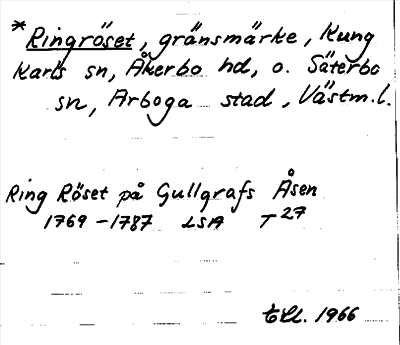 *Ringröset, gränsmärke, Kung
Karls sn, Åkerbo hd, o. Säterbo
sn, Arboga stad, Västm.l.
Ring Röset på Gullgrafs Åsen
1769-1787 LSA T27
1966